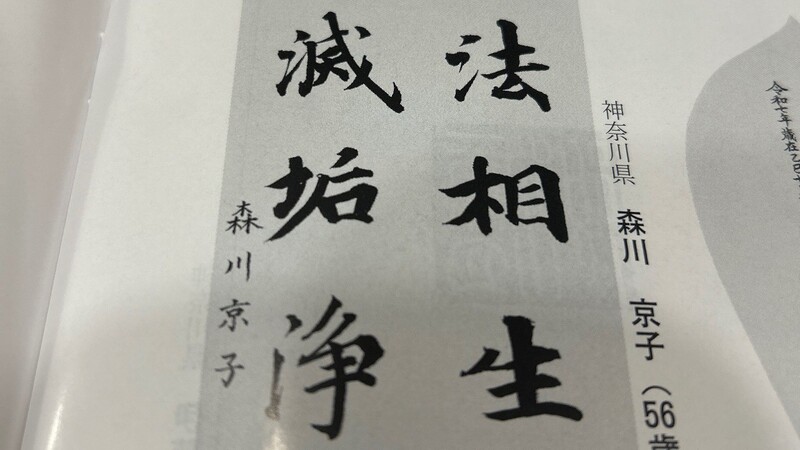 令和七年歳在乙巳
神奈川県 森川 京子（56歳
法相生
滅垢浄
森川京子